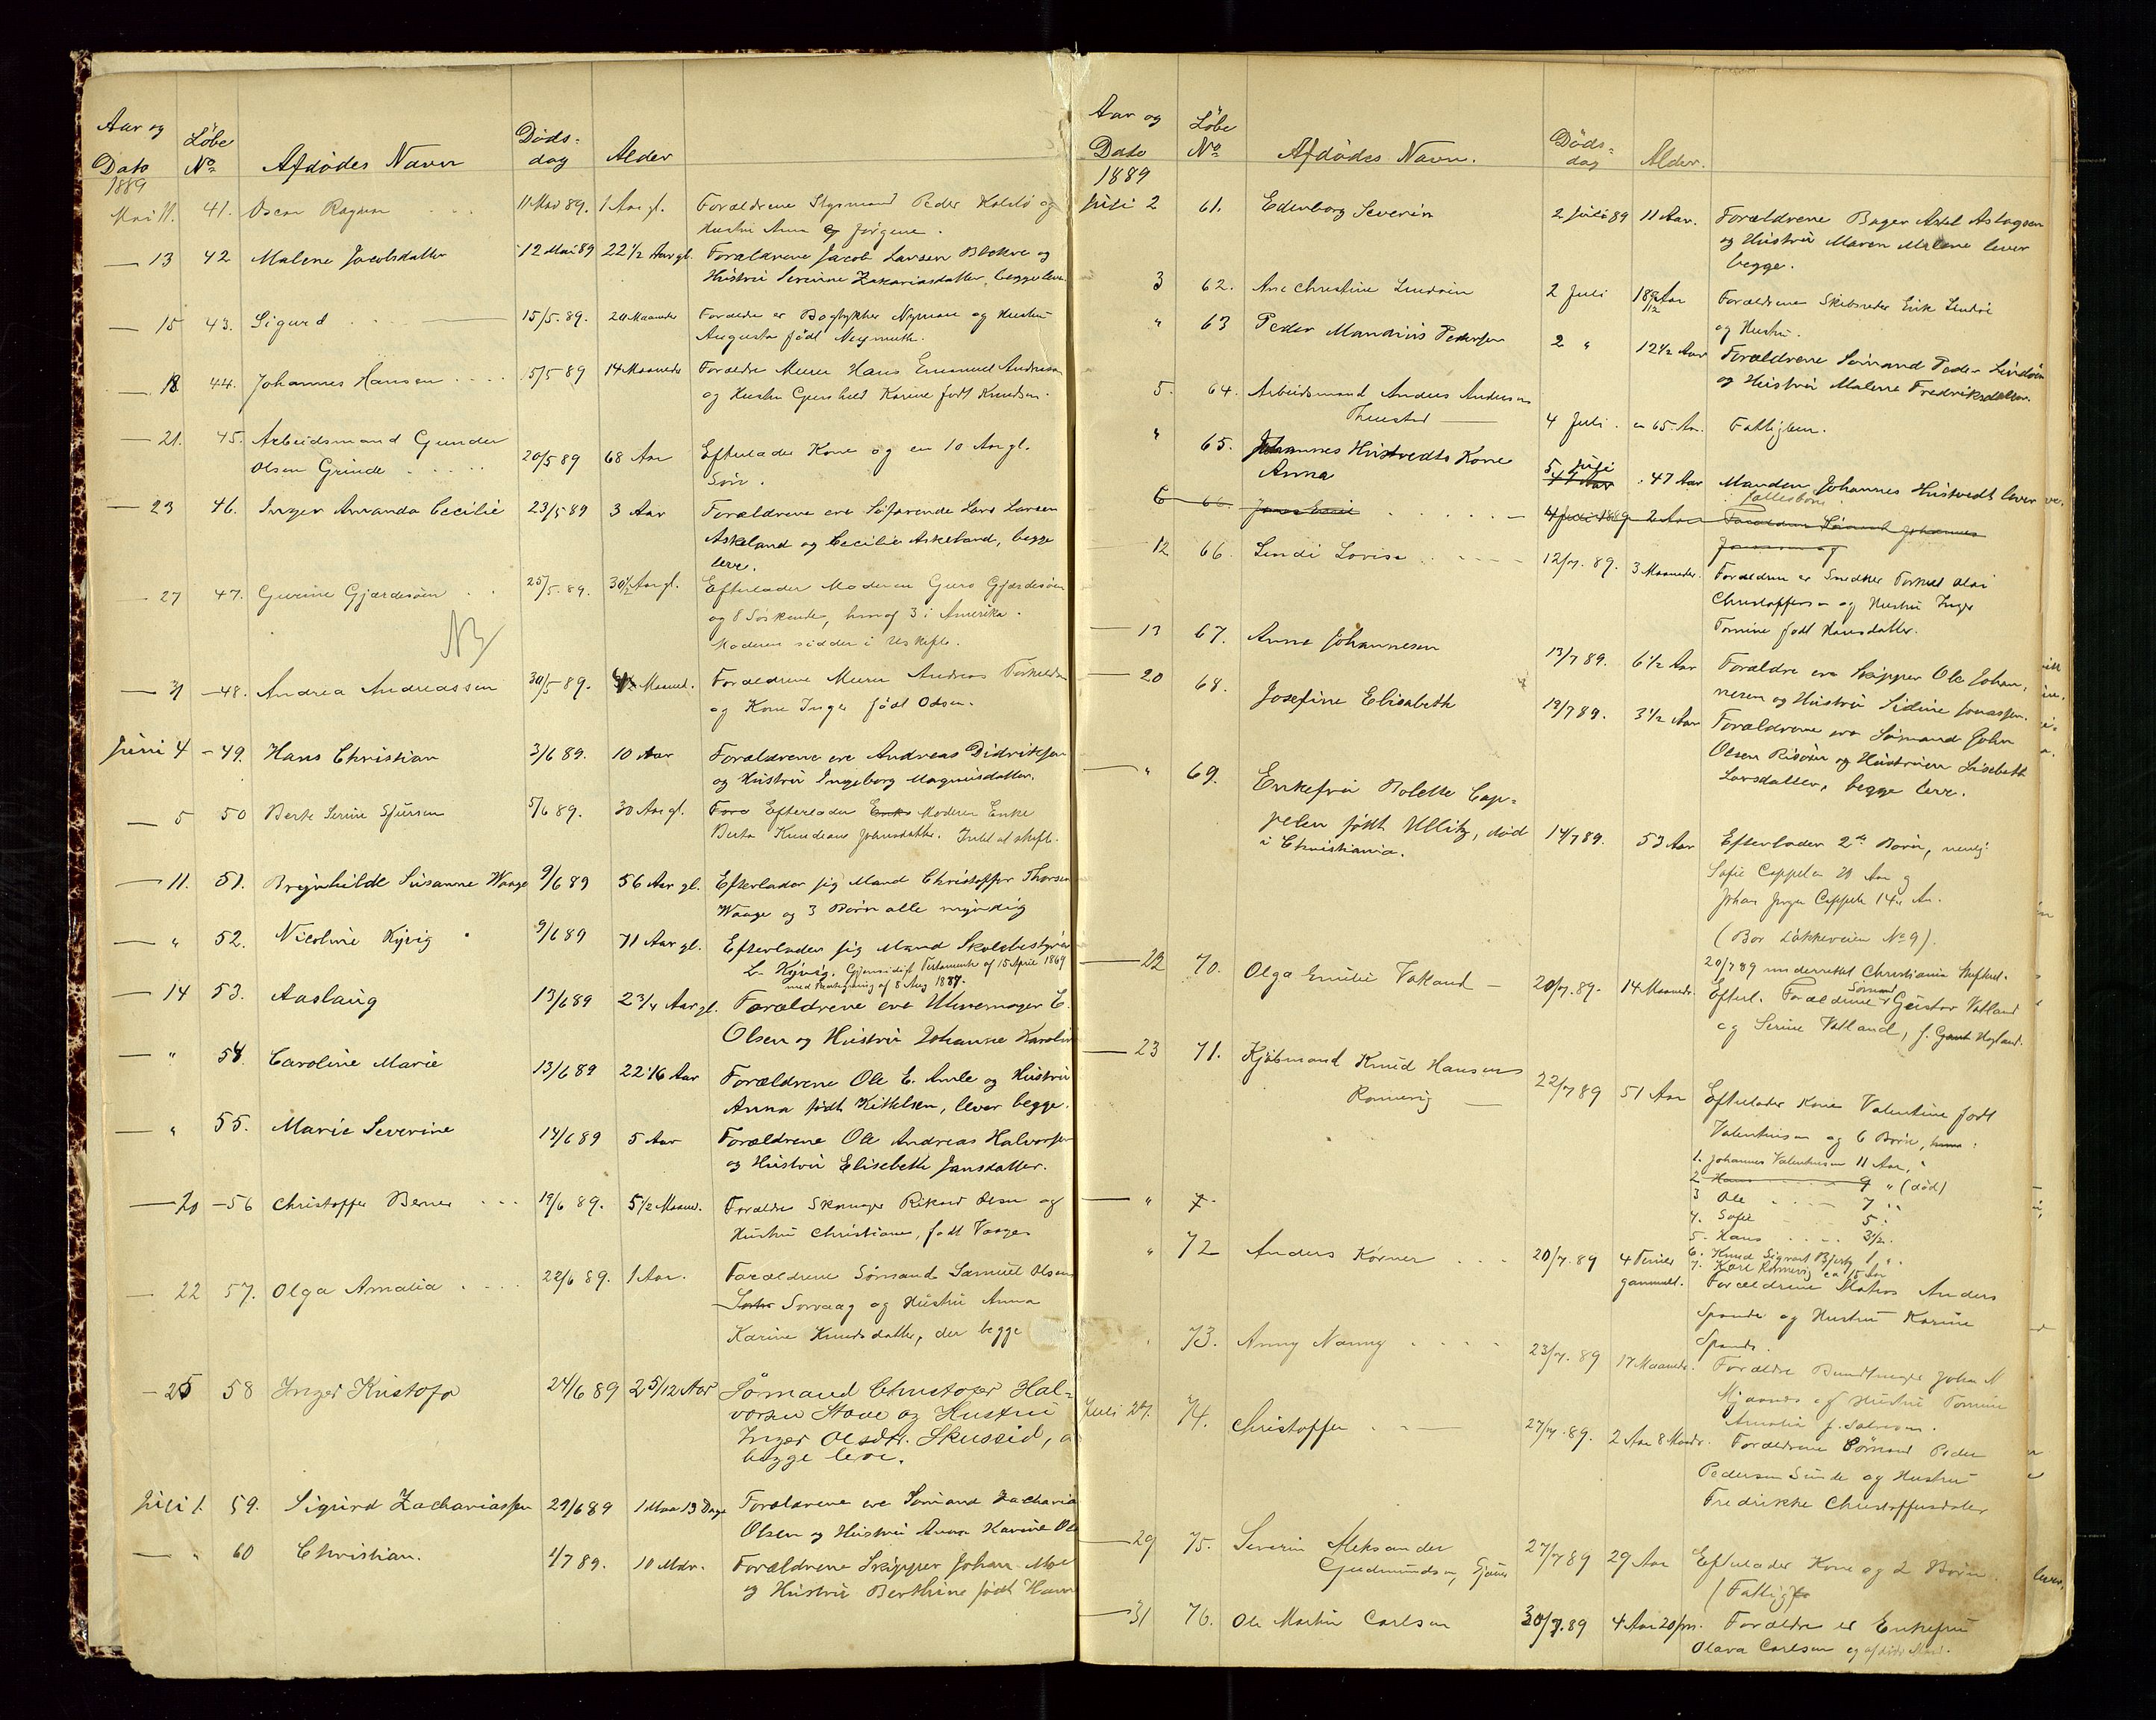 Aar og
Dato
Løbe
No
Afdødes Navn
Døds-
dag
Alder
1889
Mai 11. 41. Oscar Ragnv 11 Mai 89. 1 Aar gl. Forældrene Styrmand Peder og
Hustru Anna Jørgine.
— 13 42 Malene Jacobsdatter 12 Mai 89 22 1/2 Aar gl. Forældrene Jacob Larsen Blokve og
Hustru Serine Zakariasdatter, begge leve
— 15 43. Sigurd 15/5. 89. Maaneder Forældre er Bogtykker Nyman og Hustru
Augusta født
— 18 44. Johannes Hansen 5/5 89 14 Maaneder Forældre Murer Hans Emanuel Andreasen
og Hustru Gunhild Karine født Knudsen.
— 21. 45. Arbeidsmand Gunder
Olsen Grinde 20/5 89 68 Aar Efterlader Kone og en 10 Aar gl.
Søn.
— 23 46. Inger Amanda Cecilie 23/5 89 3 Aar Forældrene ere Søfarende Lars Larsen
Askeland og Cecilie Askeland, begge
leve.
— 27 47. Gurine Gjærdesøen 25/5. 89. 30 1/2 Aar gl. Efterlader Moderen Guro Gjærdesøen
og 8 Søskende, hvoraf 3 i Amerika.
Moderen sidder i Uskifte.
NB
— 31 — 48. Andrea Andreassen 30/5 89. Maaned. Forældrene Murer Andreas Torkildsen
og Kone Inger født Olsen.
Juni 4 — 49. Hans Christian 3/6 89. 10 Aar Forældrene ere Andreas Didriksen
og Hustru Ingeborg Magnusdatter.
— 5 50 Berte Serine Sjursen 5/6 89. 30 Aar gl. Foræ Efterlader Enke Moderen Enke
Berta Johnsdatter. Intet at skifte.
— 11. 51. Brynhilde Susanne Waage 9/6 89 56 Aar gl. Efterlader sig Mand Christoffer Thorsen
Waage og 3 Børn alle myndig
— " 52. Nicoline Kyvig 9/6 89 71 Aar gl. Efterlader sig Mand Skolebestyrer
L. Kyvig. Gjensidigt Testamente af 15 April 1869
med Paategning af 8 Aug 1887.
— 14 53. Aaslaug 13/6 89 2 3/4 Aar gl. Forældrene ere Uhrmager E.
Olsen og Hustru Johanne Karoline
— " 54. Caroline Marie 13/6 89 22 1/6 Aar Forældrene Ole E. Amle og Hustru
Anna født Kittelsen, lever begge.
— " 55. Marie Severine 14/6 89 5 Aar Forældrene Ole Andreas Halvorsen
og Hustru Elisebeth Jansdatter.
— 20 — 56 Christoffer Berner 19/6 89. 5 1/2 Maaned. Forældre Skomager Rikard Olsen og
Hustru Christiane, født Vaage
— 22 57. Olga Amalia 22/6 89. 1 Aar. Forældrene Sømand Samuel Olsen
Sørvaag og Hustru Anna
Karine Knudsdatter, der begge
— 25 58 Inger Kristofa 24/6 89 2 5/12 Aar Sømand Christofer Hal-
vorsen Stave og Hustru
Inger Olsdtr. Skussid,
begge leve.
Juli 1. 59. Sigurd Zachariassen 29/6 89 1 Maa 13 Dage Forældrene ere Sømand Zacharia
Olsen og Hustru Anna Karine Ols
— " 60 Christian. 1/7 89. 10 Mdr. Forældrene Skipper Johan Moe
og Hustru Berthine født Hans
Aar og
Dato
Løbe
No
Afdødes Navn.
Døds-
dag
Alder.
1889
Juli 2 61. Edenborg Severin 2 Juli 89 11 Aar. Forældrene Bager Axel Aslagsen
og Hustru Maren Malene lever
begge.
3 62. Ane Christine Lindøin 2 Juli 18 9/12 Aar Forældrene Skibsreder Erik Lindøe
og Hustru.
" 63 Peder Mandrius Pedersen 2 " 12 1/2 Aar Forældrene Sømand Peder Lindøen
og Hustru Malene Fredriksdatter.
5. 64. Arbeidsmand Anders Andersen
Thuestad — 4 Juli. ca 65 Aar. Fattiglem.
" 65. Johannes Hustvedts Kone
Anna 5 Juli 47 Aar Manden Johannes Hustvedt lever
i Fællesbo
6 66. Jonas Emil 4 Juli 1889 2 Aar Forældrene Sømand Johannes
Jonassen og
12 66. Lendi Lovise 12/7. 89. 3 Maaneder. Forældrene er Snedker Torkel Olai
Christoffersen og Hustru Inger
Tomine født Hansdatter.
— 13 67. Anna Johannesen 13/7 89. 6 1/2 Aar Forældre ere Skipper Ole Johan-
nesen og Hustru Sidine Jonassen.
— 20 68. Josefine Elisabeth 19/7 89. 3 1/2 Aar Forældrene ere Sømand John
Olsen Risøen og Hustruen Lisebeth
Larsdatter, begge leve.
— " 69. Enkefru Bolette Cap-
pelen født Ullitz, død
i Christiania. 14/7 89. 53 Aar Efterlader 2de Børn, nemlig
Sofie Cappelen 20 Aar og
Johan Jørgen Cappelen 14 Ar.
(Bor Løkkeveien No 9).
20/7 89 underrettet Christiania Skifteret.
— 22 70. Olga Emilie Vatland — 20/7. 89. 14 Maaneder. Efterl. Forældrene Sømand Gustav Vatland
og Serine Vatland, f. Høyland.
— 23 71. Kjøbmand Knud Hansen
Rønnevig — 22/7 89 51 Aar Efterlader Kone Valentine født
Valentinsen og 6 Børn,
1. Johannes Valentinsen 11 Aar, "
2 Hans 9 " (død)
3 Ole 7 "
4. Sofie 5 "
5. Hans 3 1/2.
6. Knud Sigvart 1 "
7. Karl Rønnevig ca 15 Aar
— " 7
" 72 Anders Korner 20/7. 89 4 Timer
gammel. Forældrene Matros Anders
Spande og Hustru Karine
Spande.
" 73. Anny Nanny 23/7. 89 17 Maaneder. Forældre Bundtmager John N
og Hustru Tomine
Amalia f. Salvesen.
Juli 27. 74. Christoffer 27/7. 89. 2 Aar 8 Maaneder. Forældrene Sømand Peder
Pedersen Sunde og Hustru
Fredrikke Christoffersdatter
— 29 75. Severin Aleksander
Gudmundsen, 27/7 89 29 Aar Efterlader Kone og 2 Børn.
(Fattig)
— 31 76. Ole Martin Carlsen 30/7. 89 4 Aar Forældre er Enkefru
Olava Carlsen og afdøde Mand.